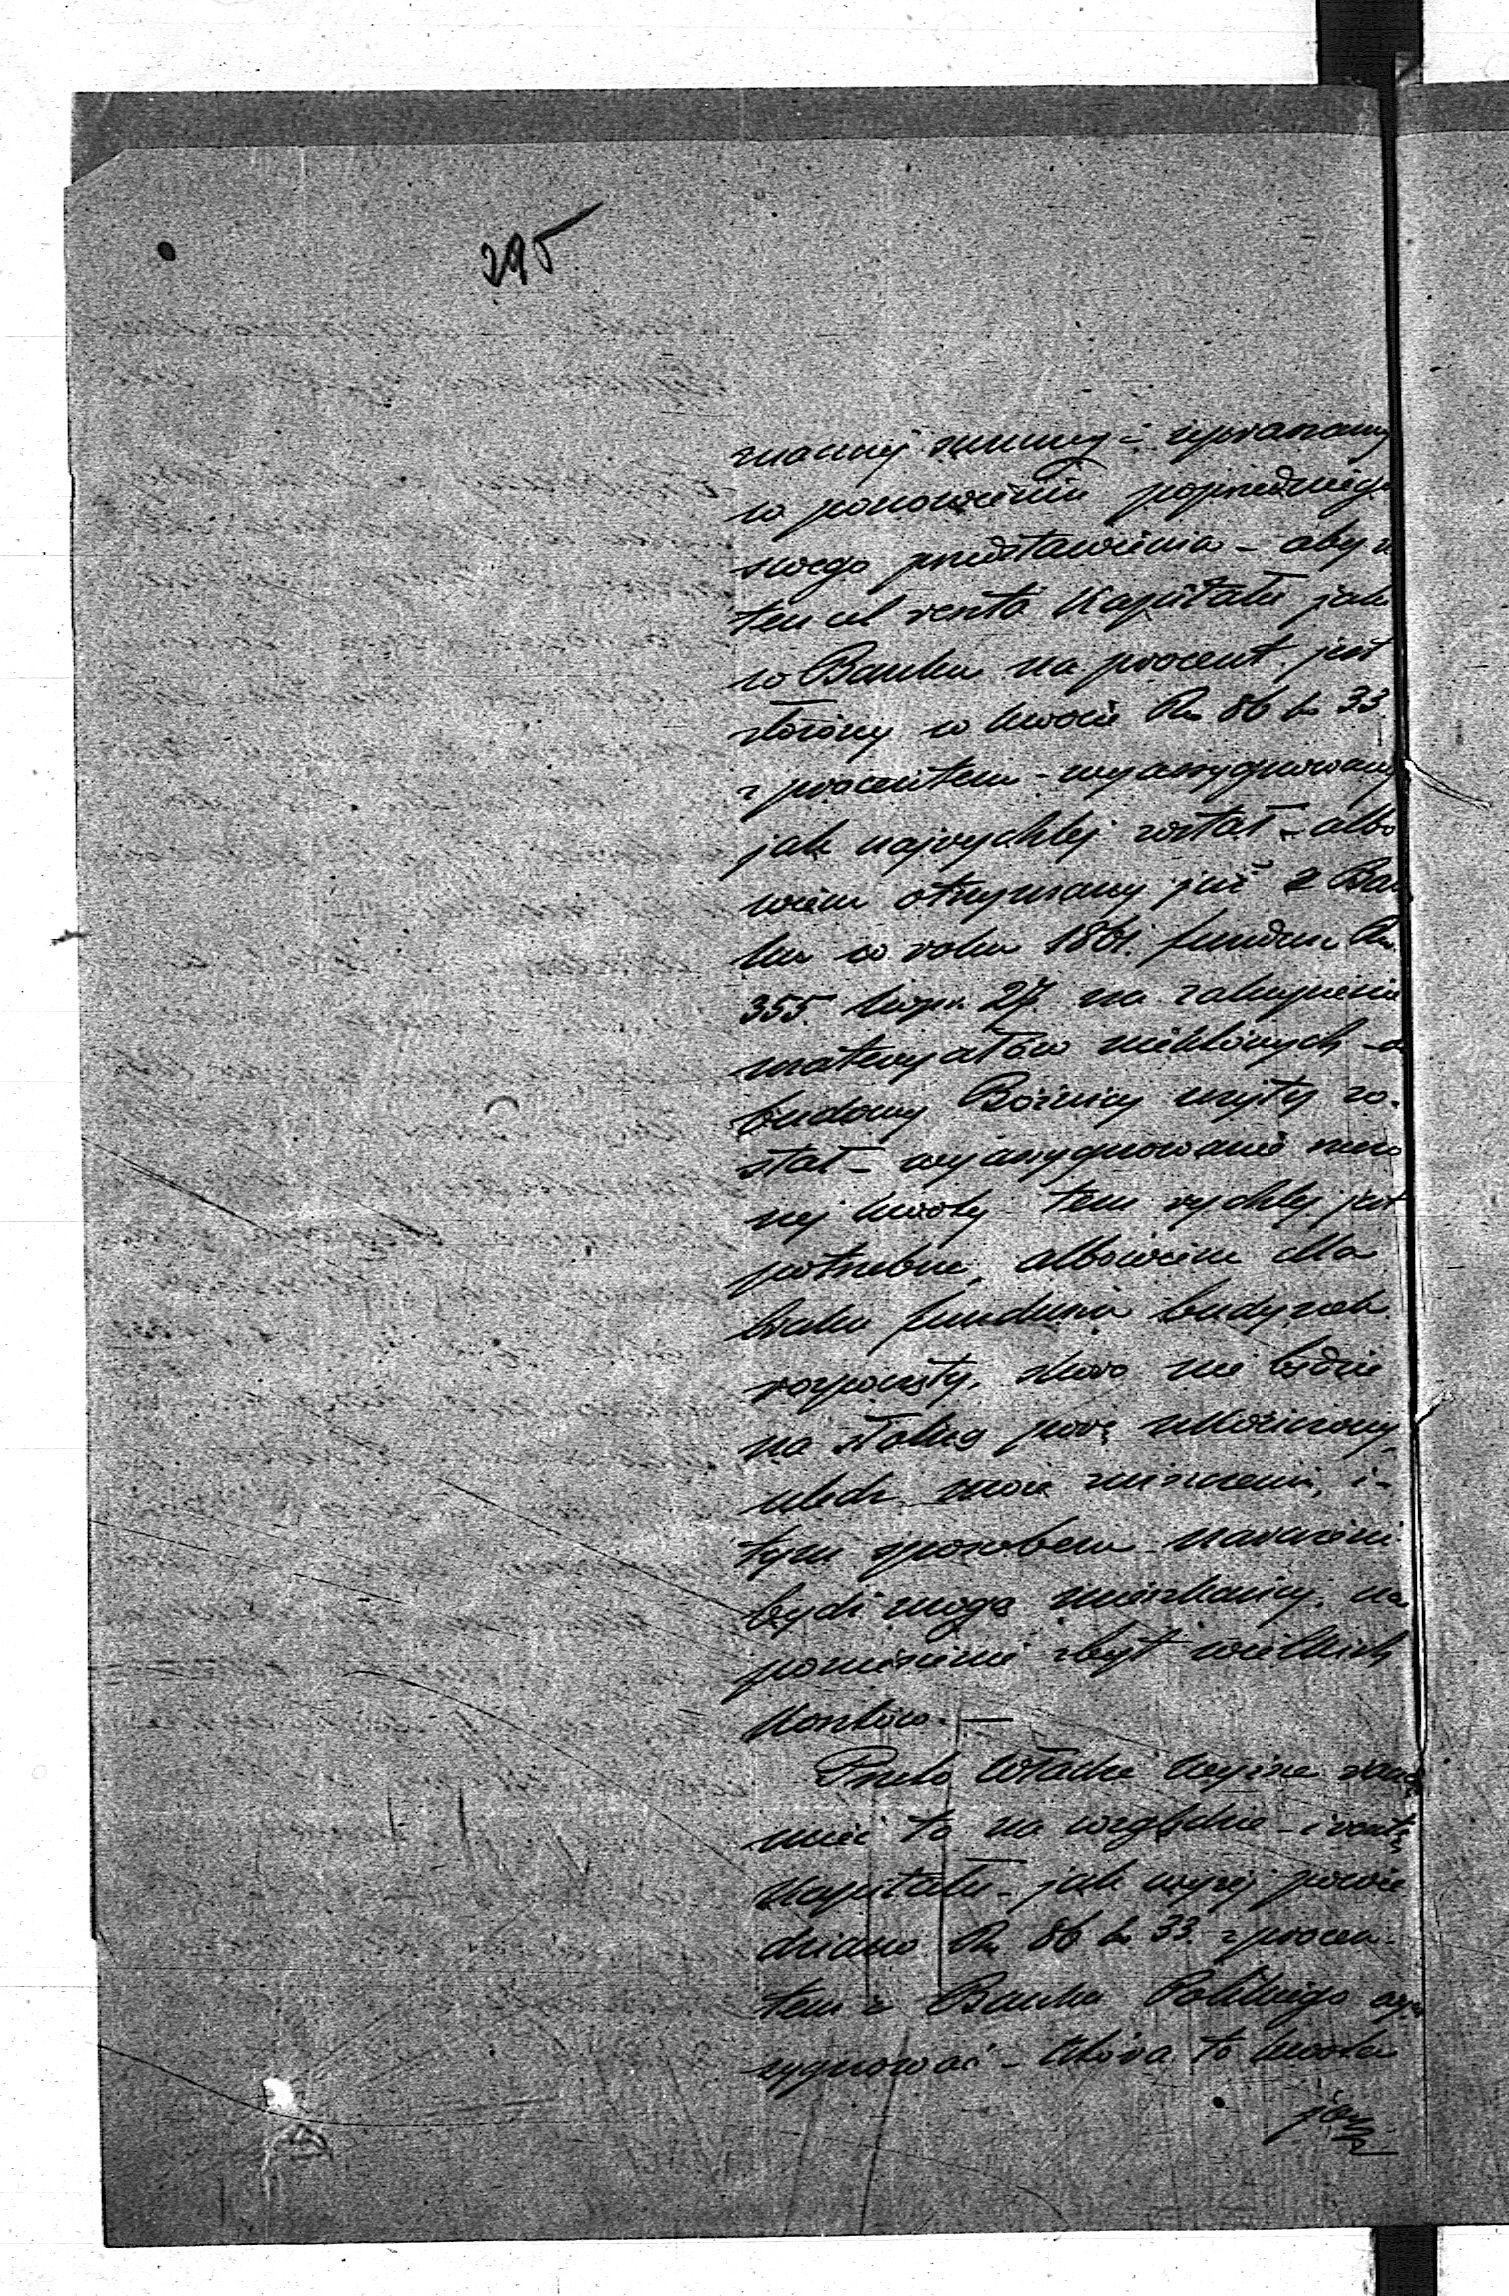 295
znacznej summy - upraszamy
w ponowieniu poprzedniego
swego przedstawienia - aby w
ten cel reszta Kapitału jaki
w Banku na procent jest
złożony w kwocie Rs 86 k. 33.
z procentem - wyassygnowany
jak najrychlej został - albo
wiem otrzymany już z Ban
ku w roku 1861. fundusz Rs.
355. kop. 27. na zakupienie
materyałów niektórych - do
budowy Bóżnicy użyty zo-
stał - wyassygnowanie
nej kwoty tem rychlej jest
potrzebne, albowiem dla
braku funduszu budynek
rozpoczęty, skoro nie będzie
na słotną porę ukończony,
uledz może zniszczeniu, i -
tym sposobem narażeni
bydź mogą mieszkańcy, na
poniesienie zbyt wielkich
Kosztów. —
Przeto Władza Wyższa raczy
mieć to na względzie - i resztę
Kapitału - jak wyżej powie
dziano Rs 86 k. 33. z procen-
tem z Banku Polskiego assy
zygnować - która to kwota